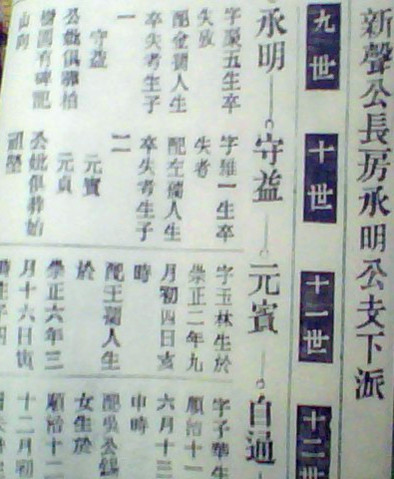 新聲公長房承明公支下派
九世
十世
十一世
十二世
承明
守益
元賓
自通
字聚五生卒
失攷
配金孺人生
卒失考生子
一
守益
公妣俱葬柏
樹園有碑記
山向
字維一生卒
失考
配左孺人生
卒失考生子
二
元賓
元貞
公妣俱葬始
祖塋
字玉林生於
崇正二年九
月初四日亥
時
配王孺人生
於
崇正六年三
月十六日寅
字子華生
順治十一
六月十三
申時
配吳公錫
女生於
順治十二
十二月初